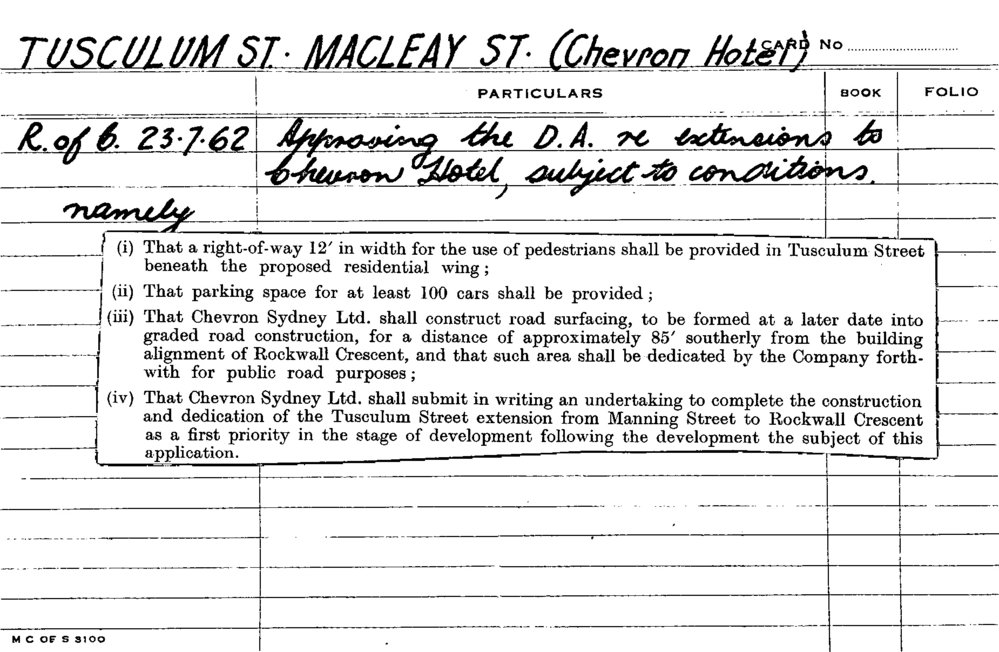 TUSCULUM ST. MACLEAY ST. (Chevron Hotel) CARD No
PARTICULARS BOOK FOLIO
R. of C. 23.7.62 Approving the D.A. re extensions to
Chevron Hotel, subject to conditions.
namely
(i) That a right-of-way 12′ in width for the use of pedestrians shall be provided in Tusculum Street
beneath the proposed residential wing;
(ii) That parking space for at least 100 cars shall be provided;
(iii) That Chevron Sydney Ltd. shall construct road surfacing, to be formed at a later date into
graded road construction, for a distance of approximately 85′ southerly from the building
alignment of Rockwall Crescent, and that such area shall be dedicated by the Company forth-
with for public road purposes;
(iv) That Chevron Sydney Ltd. shall submit in writing an undertaking to complete the construction
and dedication of the Tusculum Street extension from Manning Street to Rockwall Crescent
as a first priority in the stage of development following the development the subject of this
application.
M C OF S 3100